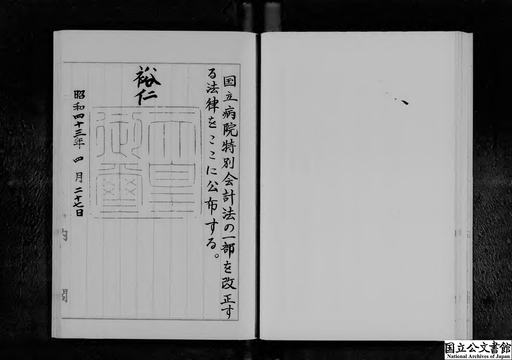 国立病院特別会計法の一部を改正す
る法律をここに公布する。
裕仁
天皇御璽
昭和四十三年四月二十七日
内閣
国立公文書館
National Archives of Japan